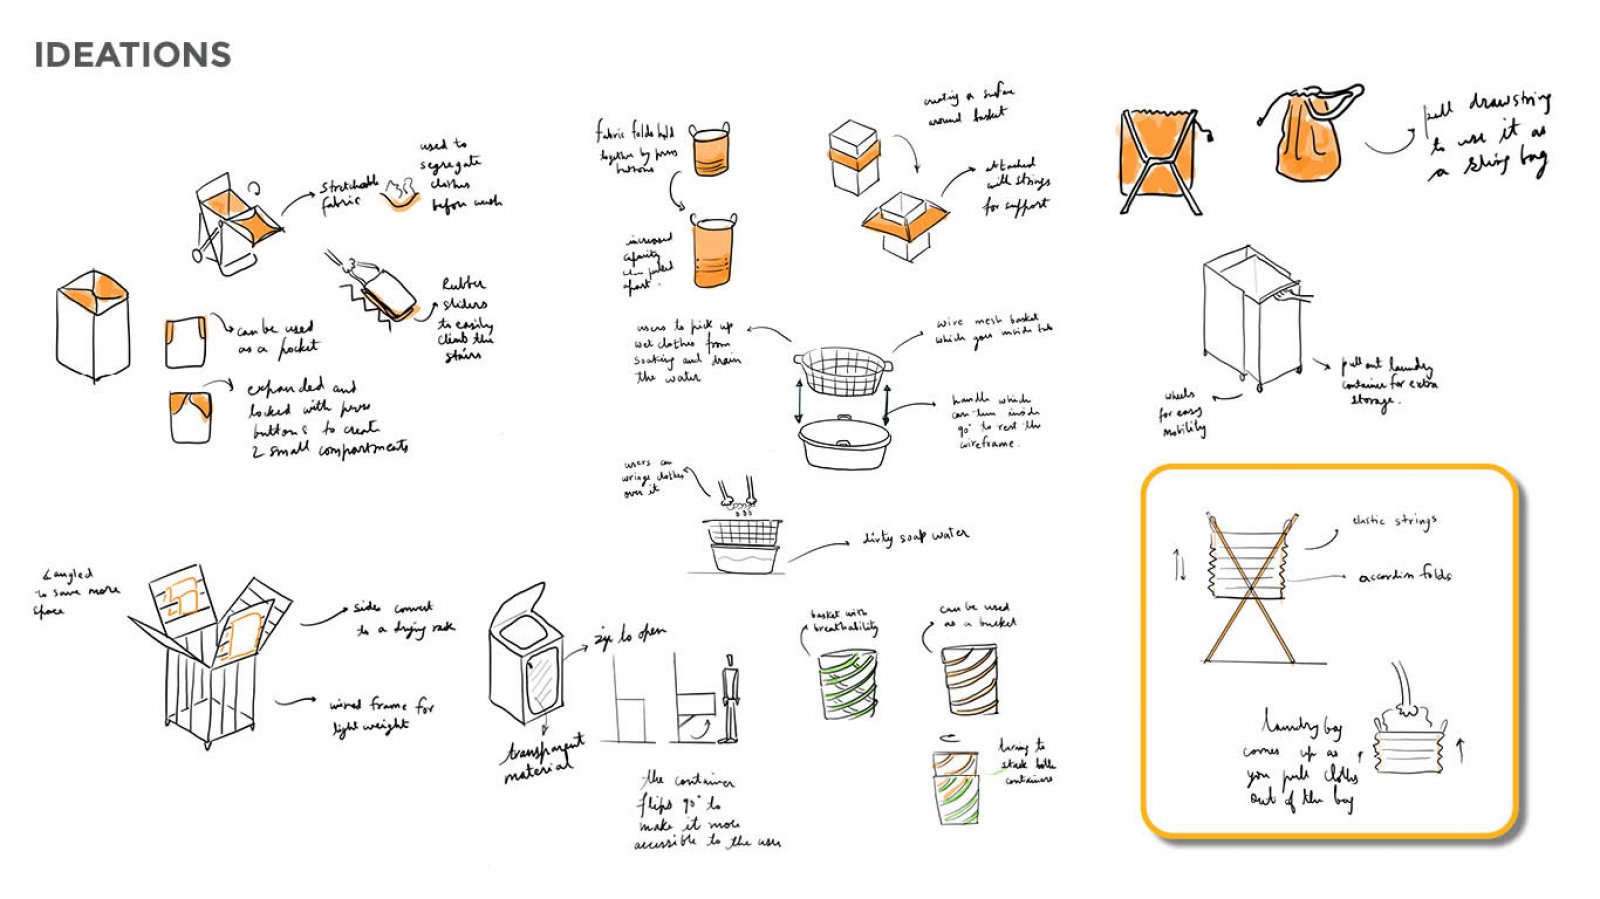 IDEATIONS
used to
segregate
clothes
before wash
stretchable
fabric
Rubber
sliders
to easily
climb the
stairs
can be used
as a pocket
expanded and
locked with press
buttons to create
2 small compartments
fabric folds held
together by press
buttons
increased
capacity
when pulled
apart.
creating a surface
around basket
attached
with strings
for support
pull drawstring
to use it as
a sling bag
users to pick up
wet clothes from
soaking and drain
the water
wire mesh basket
which goes inside tub
handle which
can turn inside
90° to rest the
wireframe.
users can
wringe clothes
over it
dirty soap water
pull out laundry
container for extra
storage.
wheels
for easy
mobility
elastic strings
accordion folds
laundry bag
comes up as
you pull cloths
out of the bag
angled
to save more
space
sides convert
to a drying rack
wired frame for
light weight
zip to open
transparent
material
the container
flips 90° to
make it more
accessible to the user
basket with
breathability
can be used
as a bucket
turning to
stack both
containers